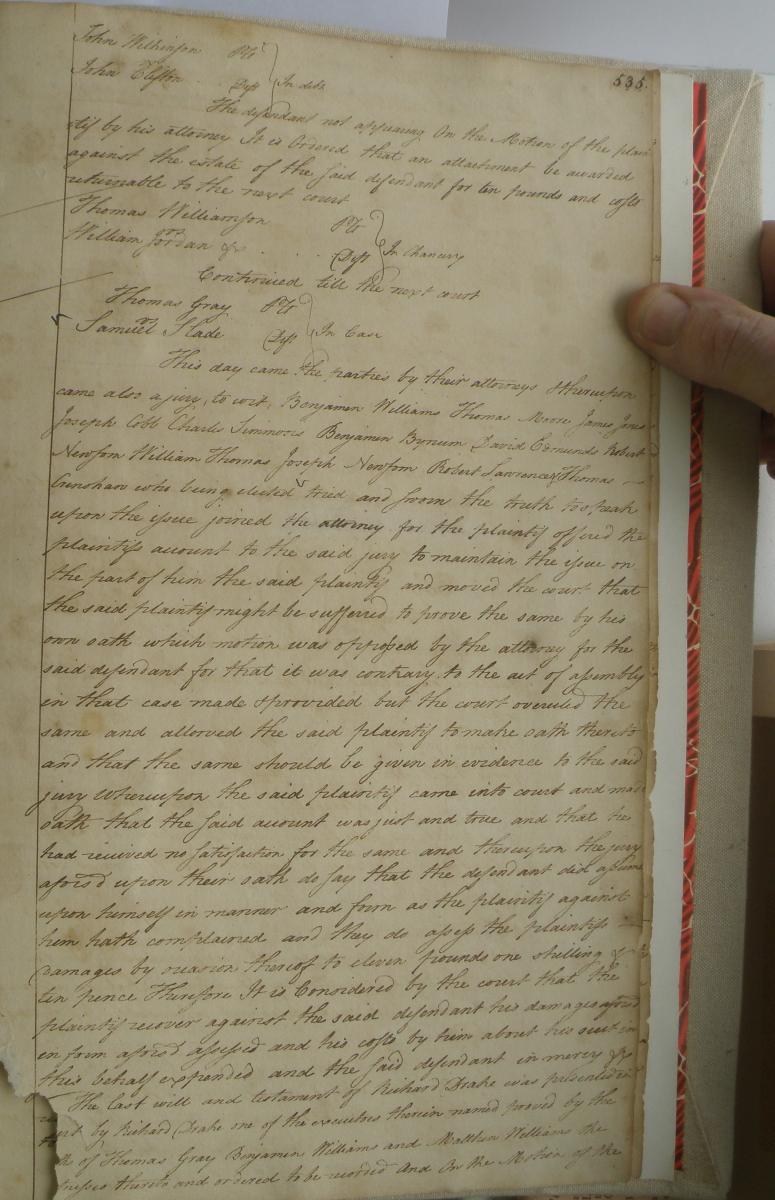 535.
John Wilkinson Plt
John Clifton Deft In debt
The defendant not appearing On the Motion of the plain
tif by his attorney It is Ordered that an attachment be awarded
against the estate of the said defendant for ten pounds and costs
returnable to the next court
Thomas Williamson Plt
vs
William Jordan &c Deft In Chancery
Continued till the next court
Thomas Gray Plt
vs
Samuel Slade Deft In Case
This day came the parties by their attorneys & thereupon
came also a jury, to wit, Benjamin Williams Thomas Moore James Jones
Joseph Cobb Charles Simmons Benjamin Bynum David Edmunds Robert
Newsom William Thomas Joseph Newsom Robert Lawrence & Thomas
Crenshaw who being elected tried and sworn the truth to speak
upon the issue joined the attorney for the plaintif offered the
plaintifs account to the said jury to maintain the issue on
the part of him the said plaintif and moved the court that
the said plaintif might be suffered to prove the same by his
own oath which motion was opposed by the attorney for the
said defendant for that it was contrary to the act of assembly
in that case made & provided but the court overruled the
same and allowed the said plaintif to make oath thereto
and that the same should be given in evidence to the said
jury Whereupon the said plaintif came into court and made
oath that the said account was just and true and that he
had received no satisfaction for the same and thereupon the jury
aforsd upon their oath do say that the defendant did assume
upon himself in manner and form as the plaintif against
him hath complained and they do assess the plaintifs
damages by occasion thereof to eleven pounds one shilling &
ten pence Therefore It is Considered by the court that the
plaintif recover against the said defendant his damages aforsd
in form aforsd assessed and his costs by him about his suit in
this behalf expended and the said defendant in mercy &c
The last will and testament of Richard Drake was presented in
by Richard Drake one of the executors therein named proved by the
of Thomas Gray Benjamin Williams and Matthew Williams the
nesses thereto and ordered to be recorded And On the Motion of the